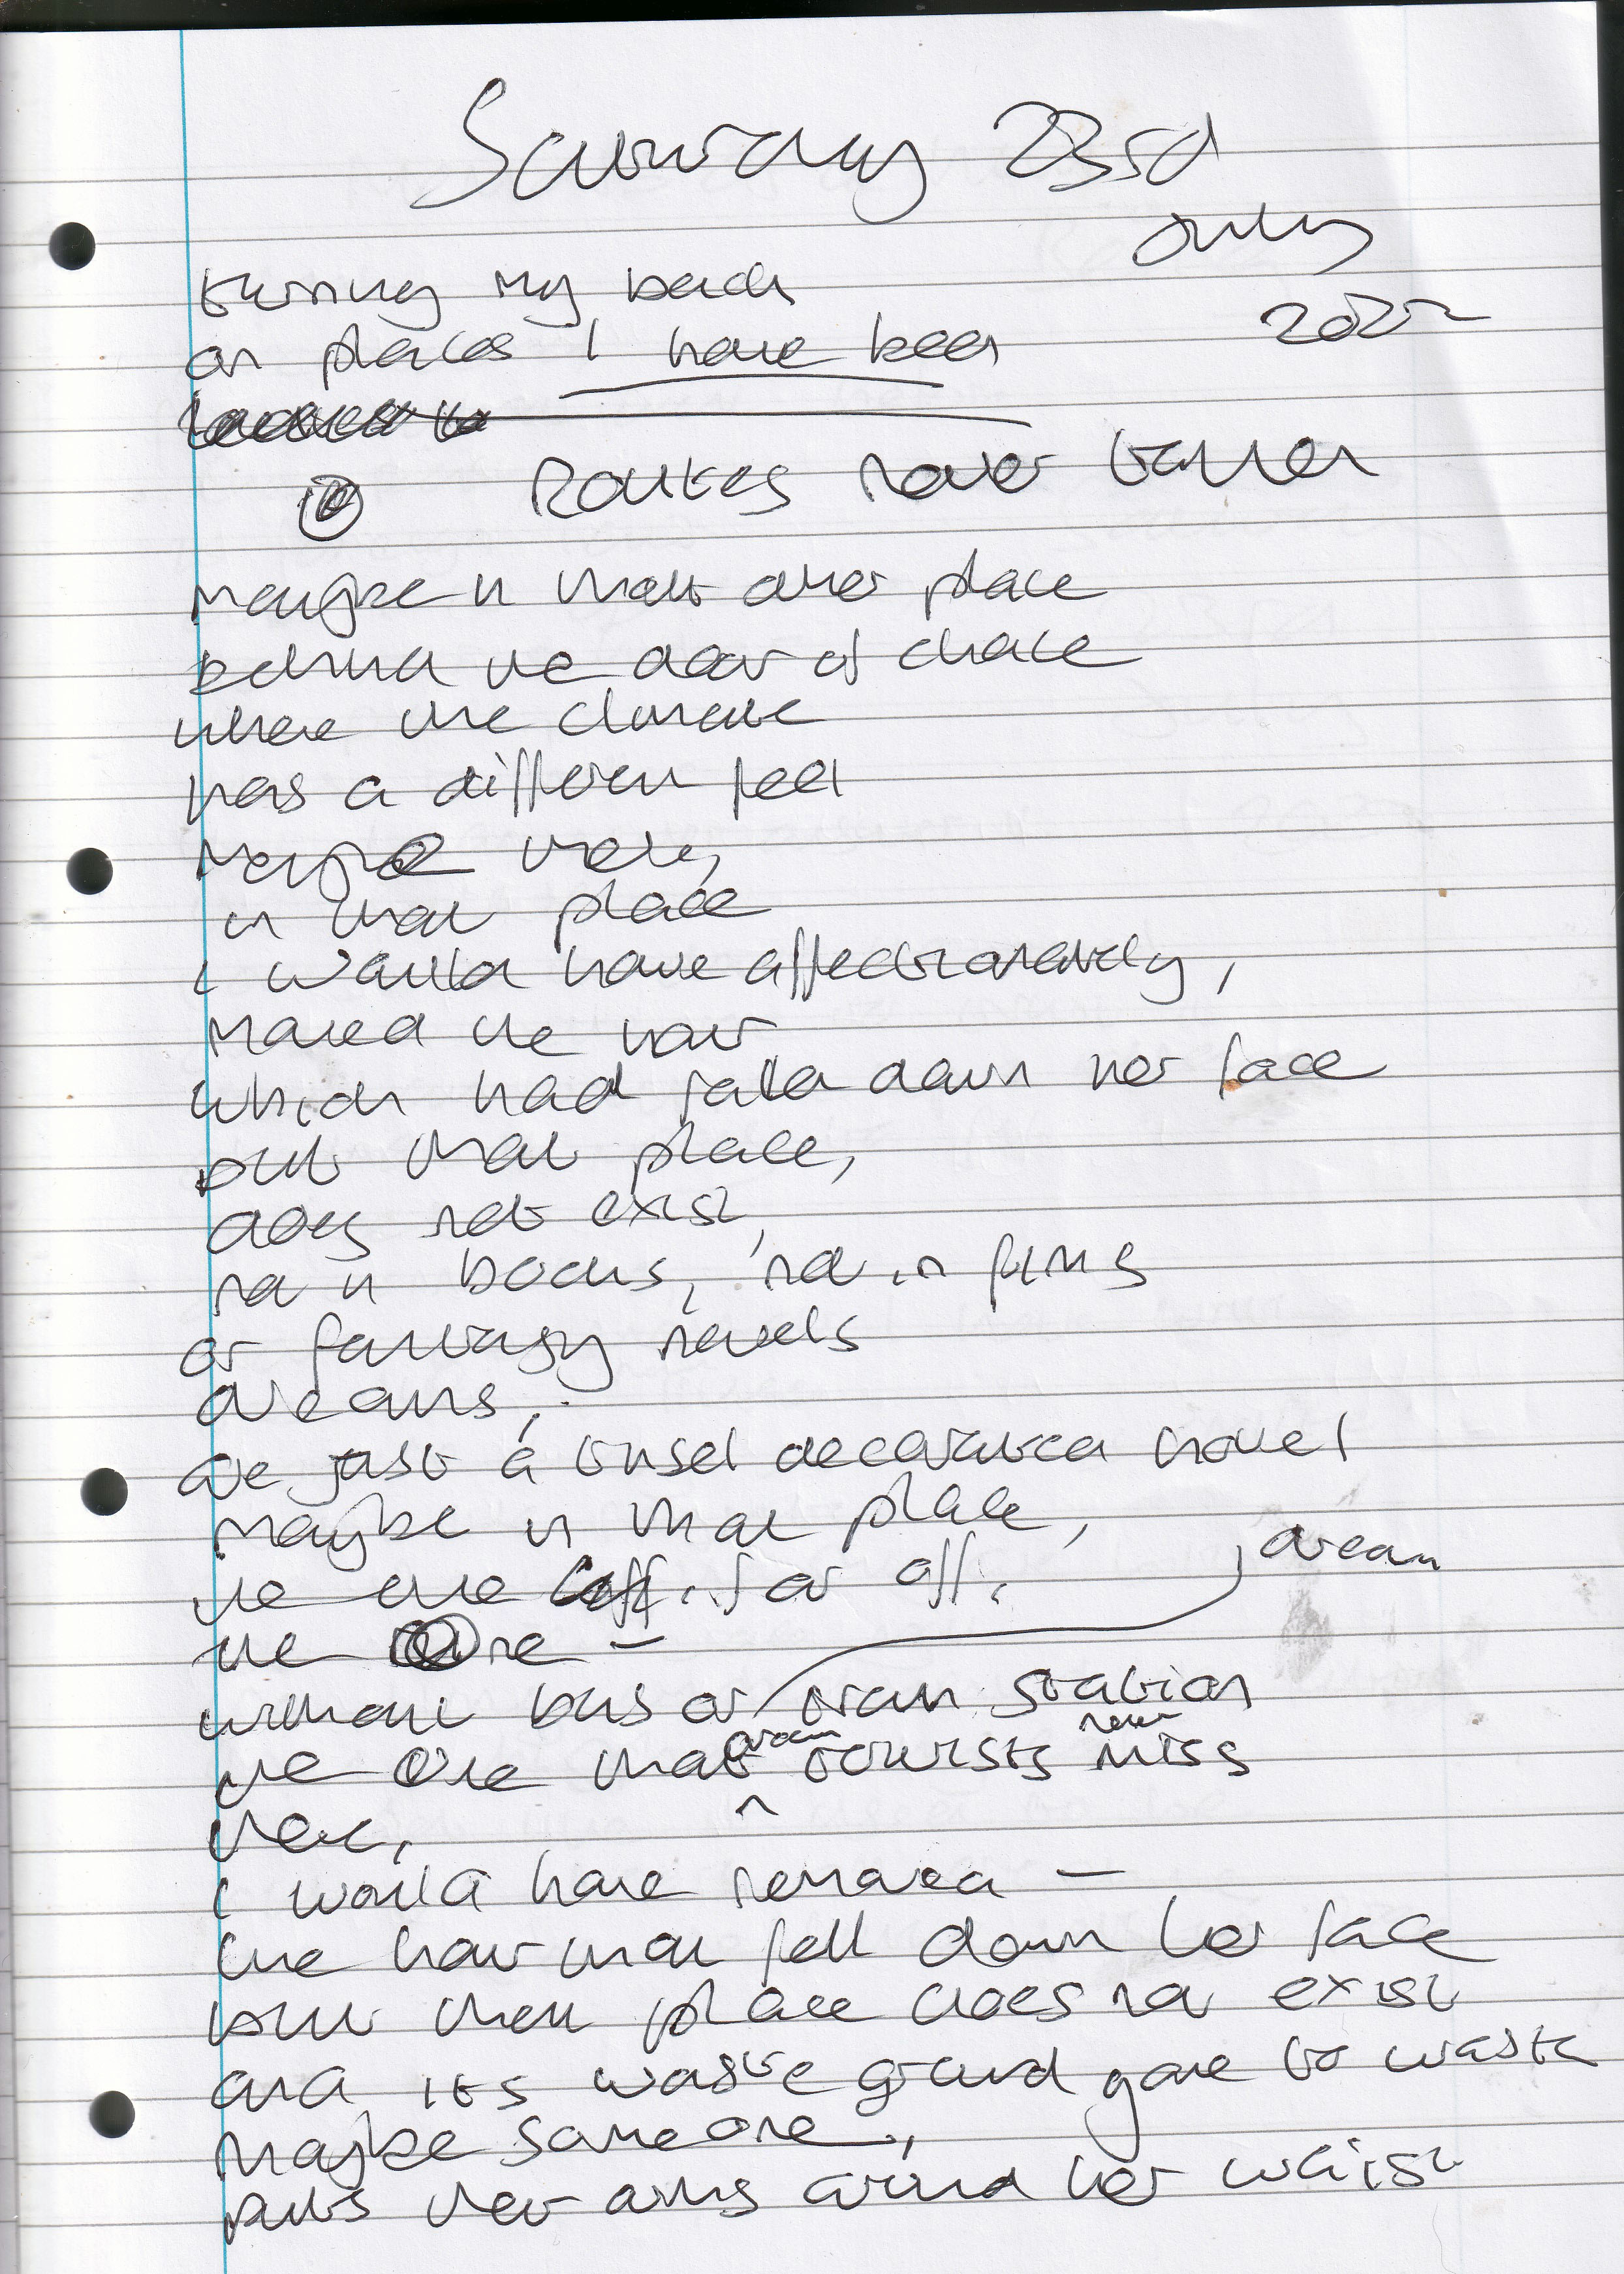 Saturday 23rd
July
2022
turning my back
on places I have been
Routes never taken
maybe in that other place
behind the door of chance
where the climate
has a different feel
maybe there,
in that place
i would have affectionately,
moved the hair
which had fallen down her face
but that place,
does not exist,
not in books, not in films
or fantasy novels
dreams,
are just a tinsel decorated hovel
maybe in that place,
dream
the one far off.
the one –
without bus or train station
the one that dream tourists never miss
there,
i would have removed –
the hair that fell down her face
but that place does not exist
and its waste ground gone to waste
maybe someone,
puts their arms around her waist